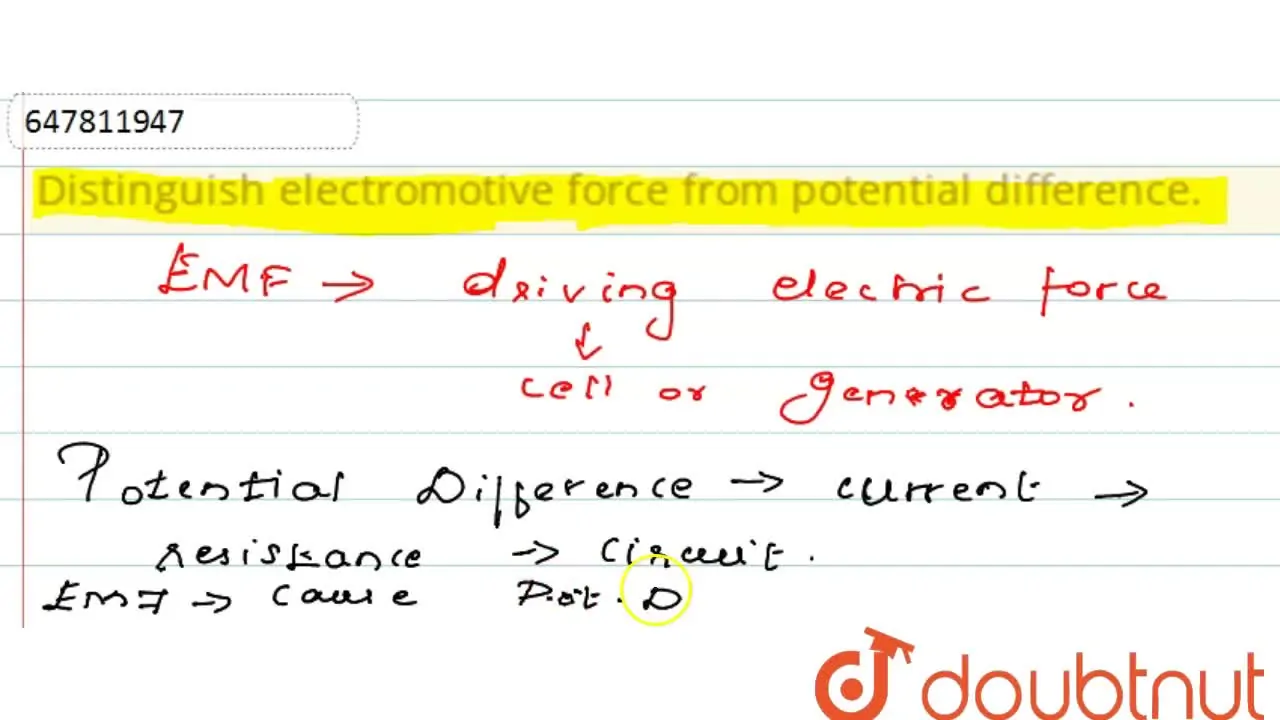 647811947
Distinguish electromotive force from potential difference.
EMF → driving electric force
↓
cell or generator.
Potential Difference → current →
resistance → circuit.
EMF → cause Pot. D
doubtnut